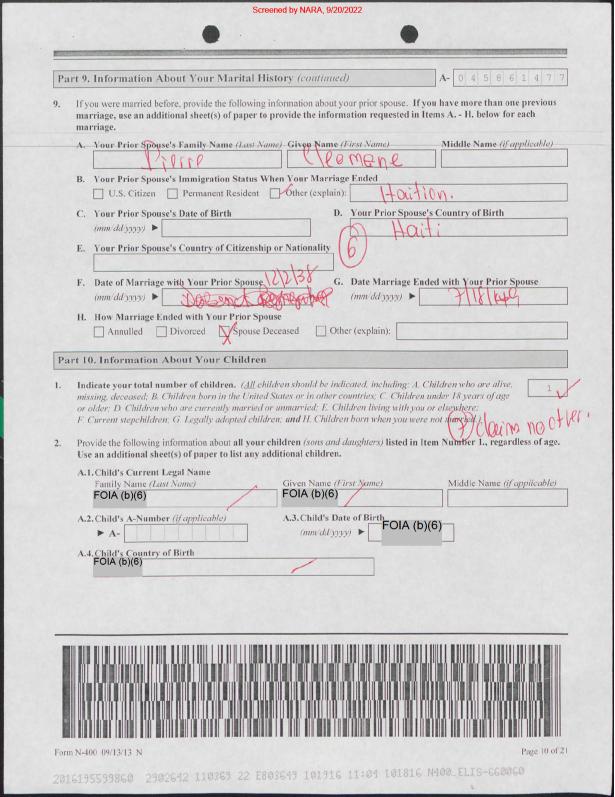 Screened by NARA, 9/20/2022
Part 9. Information About Your Marital History (continued) A- 0 4 5 8 6 1 4 7 7
9. If you were married before, provide the following information about your prior spouse. If you have more than one previous
marriage, use an additional sheet(s) of paper to provide the information requested in Items A. - H. below for each
marriage.
A. Your Prior Spouse's Family Name (Last Name) Given Name (First Name) Middle Name (if applicable)
Pierre Cleomene
B. Your Prior Spouse's Immigration Status When Your Marriage Ended
U.S. Citizen Permanent Resident Other (explain): Haition.
C. Your Prior Spouse's Date of Birth D. Your Prior Spouse's Country of Birth
(mm/dd/yyyy) Haiti
6
E. Your Prior Spouse's Country of Citizenship or Nationality
F. Date of Marriage with Your Prior Spouse 12/2/38 G. Date Marriage Ended with Your Prior Spouse
(mm/dd/yyyy) (mm/dd/yyyy)
H. How Marriage Ended with Your Prior Spouse
Annulled Divorced Spouse Deceased Other (explain):
Part 10. Information About Your Children
1. Indicate your total number of children. (All children should be indicated, including: A. Children who are alive, 1
missing, deceased; B. Children born in the United States or in other countries; C. Children under 18 years of age
or older; D. Children who are currently married or unmarried; E. Children living with you or elsewhere;
F. Current stepchildren; G. Legally adopted children; and H. Children born when you were not married.)
7 claims no other.
2. Provide the following information about all your children (sons and daughters) listed in Item Number 1., regardless of age.
Use an additional sheet(s) of paper to list any additional children.
A.1. Child's Current Legal Name
Family Name (Last Name) Given Name (First Name) Middle Name (if applicable)
FOIA (b)(6) FOIA (b)(6)
A.2. Child's A-Number (if applicable) A.3. Child's Date of Birth
A- (mm/dd/yyyy) FOIA (b)(6)
A.4. Child's Country of Birth
FOIA (b)(6)
Form N-400 09/13/13 N Page 10 of 21
2016195599860 2902642 110369 22 E803649 101916 11:04 101816 N400_ELIS-660060